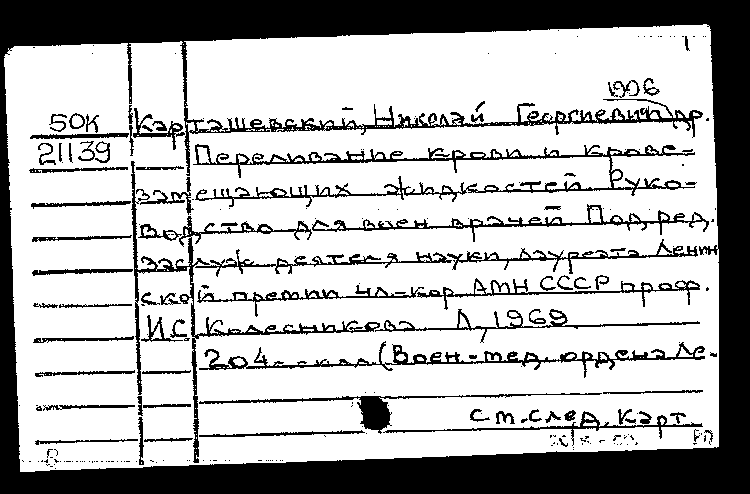 1
1906
50К Карташевский, Николай Георгиевич др.
21139 Переливание крови и крове=
замещающих жидкостей Руко-
водство для воен врачей Под ред.
заслуж деятеля науки, лауреата Ленин
ской премии чл-кор АМН СССР проф.
И С Колесникова Л, 1969
204 с. (Воен-мед. ордена Ле-
см. след. карт
В РП